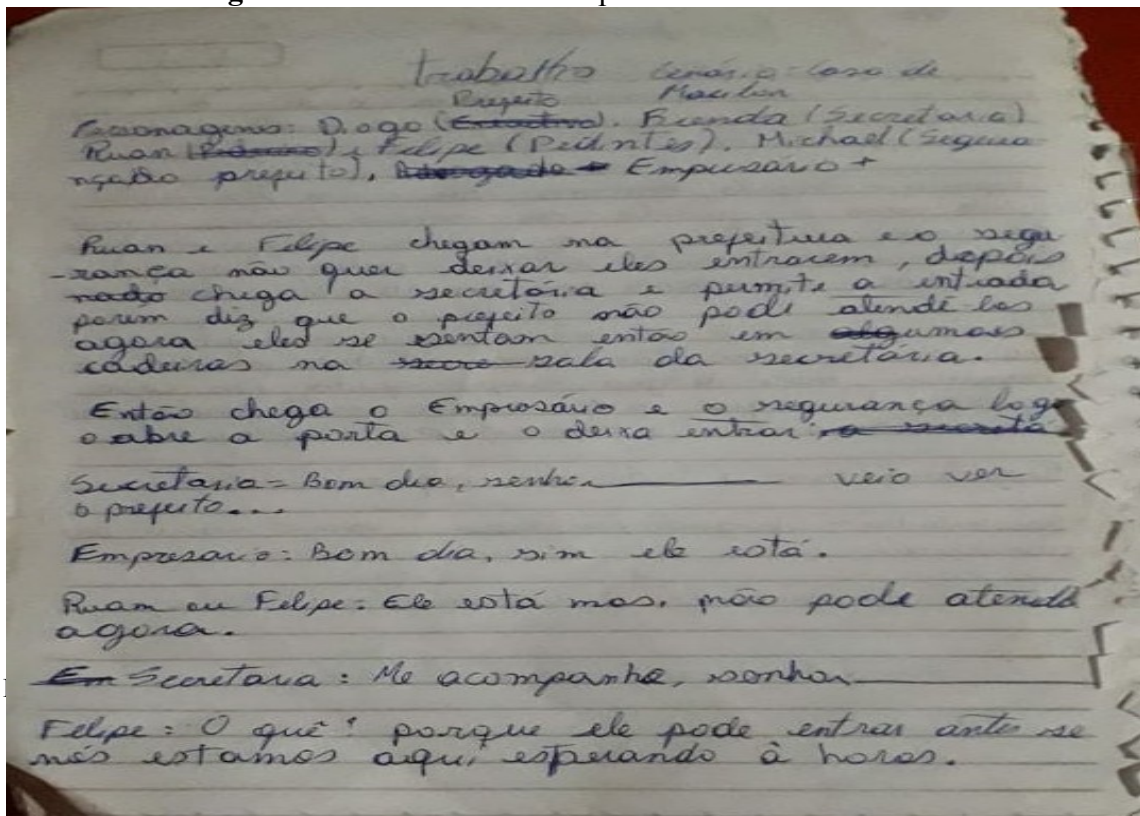 trabalho Cenário: casa de
Prefeito Marlon
Personagens: Diogo (Executivo). Brenda (Secretaria)
Ruan e Felipe (Pedintes). Michael (Segura
nça do prefeito), Advogado Empresario +
Ruan e Felipe chegam na prefeitura e o segu
-rança não quer deixar eles entrarem, depois
nado chega a secretária e permite a entrada
porem diz que o prefeito não pode atende los
agora eles se sentam então em algumas
cadeiras na secre sala da secretária.
Então chega o Empresário e o segurança log
o abre a porta e o deixa entrar a secreta
Secretaria = Bom dia, senhor veio ver
o prefeito...
Empresario: Bom dia, sim ele está.
Ruam ou Felipe: Ele está mas, não pode atende
agora.
Em Secretara: Me acompanhe, senhor
Felipe: O quê? porque ele pode entrar antes se
nós estamos aqui esperando à horas.